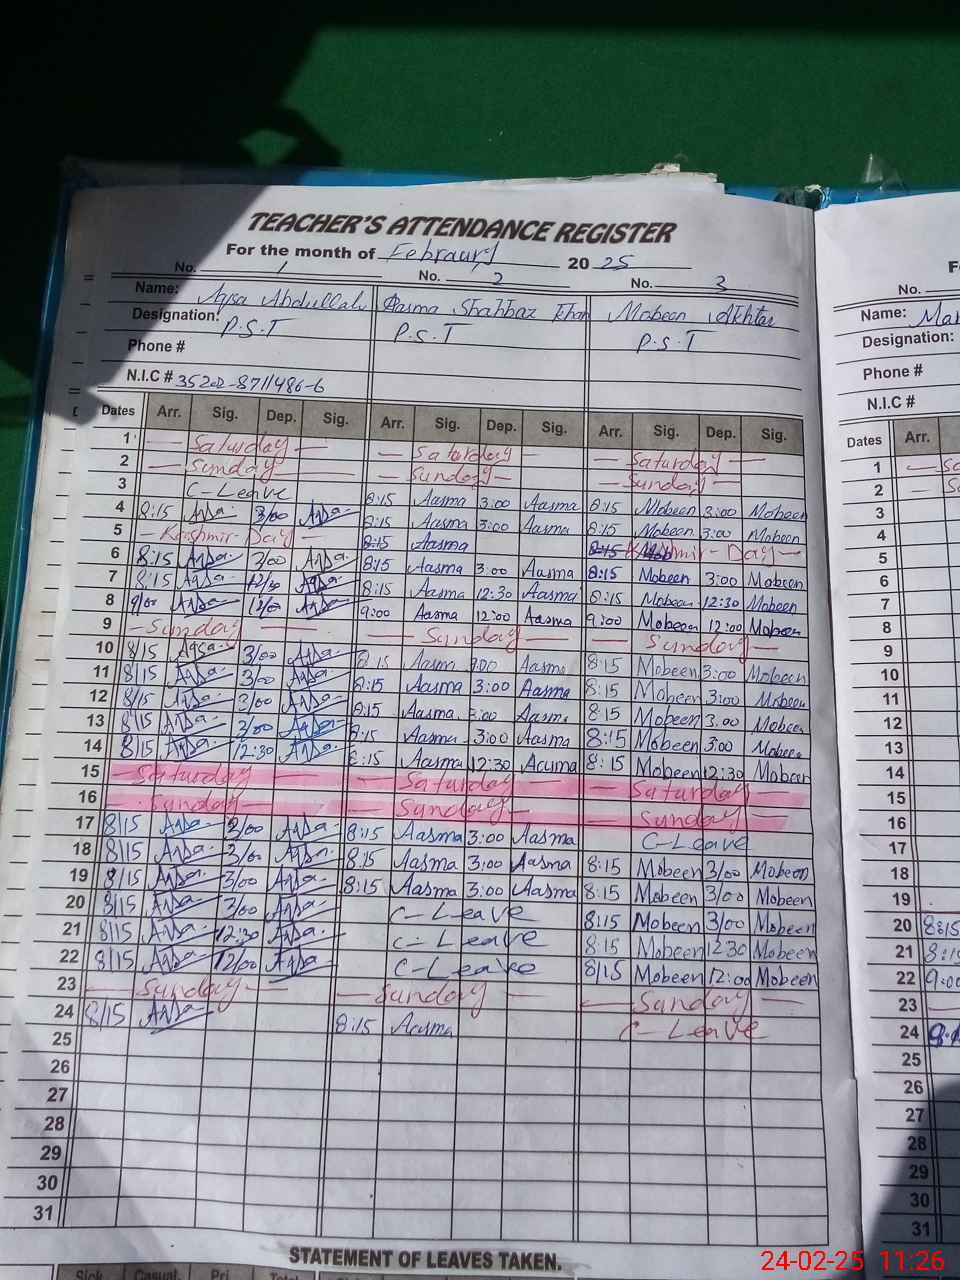 TEACHER'S ATTENDANCE REGISTER
For the month of Febraury 2025
No. 1 No. 2 No. 3 No.
Name: Aqsa Abdullah Aasma Shahbaz Khan Mobeen Akhtar Name:
Designation: P.S.T P.S.T P.S.T Designation:
Phone # Phone #
N.I.C # N.I.C #
Dates Arr. Sig. Dep. Sig. Arr. Sig. Dep. Sig. Arr. Sig. Dep. Sig. Dates Arr.
1 — Saturday — — Saturday — — Saturday — 1
2 — Sunday — — Sunday — — Sunday — 2
3 C-Leave 8:15 Aasma 3:00 Aasma 8:15 Mobeen 3:00 Mobeen 3
4 8:15 Aqsa 3/00 Aqsa 8:15 Aasma 3:00 Aasma 8:15 Mobeen 3:00 Mobeen 4
5 — Kashmir Day — 8:15 Aasma 8:15 Kashmir - Day — 5
6 8:15 Aqsa 3/00 Aqsa 8:15 Aasma 3:00 Aasma 8:15 Mobeen 3:00 Mobeen 6
7 8:15 Aqsa 12/30 Aqsa 8:15 Aasma 12:30 Aasma 8:15 Mobeen 12:30 Mobeen 7
8 9/00 Aqsa 12/00 Aqsa 9:00 Aasma 12:00 Aasma 9:00 Mobeen 12:00 Mobeen 8
9 — Sunday — — Sunday — — Sunday — 9
10 8/15 Aqsa 3/00 Aqsa 8:15 Aasma 3:00 Aasma 8:15 Mobeen 3:00 Mobeen 10
11 8/15 Aqsa 3/00 Aqsa 8:15 Aasma 3:00 Aasma 8:15 Mobeen 3:00 Mobeen 11
12 8/15 Aqsa 3/00 Aqsa 8:15 Aasma 3:00 Aasma 8:15 Mobeen 3:00 Mobeen 12
13 8/15 Aqsa 3/00 Aqsa 8:15 Aasma 3:00 Aasma 8:15 Mobeen 3:00 Mobeen 13
14 8/15 Aqsa 12:30 Aqsa 8:15 Aasma 12:30 Aasma 8:15 Mobeen 12:30 Mobeen 14
15 — Saturday — — Saturday — — Saturday — 15
16 — Sunday — — Sunday — — Sunday — 16
17 8/15 Aqsa 3/00 Aqsa 8:15 Aasma 3:00 Aasma C-Leave 17
18 8/15 Aqsa 3/00 Aqsa 8:15 Aasma 3:00 Aasma 8:15 Mobeen 3/00 Mobeen 18
19 8/15 Aqsa 3/00 Aqsa 8:15 Aasma 3:00 Aasma 8:15 Mobeen 3/00 Mobeen 19
20 8/15 Aqsa 3/00 Aqsa C-Leave 8:15 Mobeen 3/00 Mobeen 20 8:15
21 8/15 Aqsa 12:30 Aqsa C-Leave 8:15 Mobeen 12:30 Mobeen 21 8:15
22 8/15 Aqsa 12/00 Aqsa C-Leave 8/15 Mobeen 12:00 Mobeen 22 9:00
23 — Sunday — — Sunday — — Sunday — 23
24 8/15 Aqsa 8:15 Aasma C-Leave 24
25 25
26 26
27 27
28 28
29 29
30 30
31 31
STATEMENT OF LEAVES TAKEN.
Sick Casual. Pri. Total
24-02-25 11:26